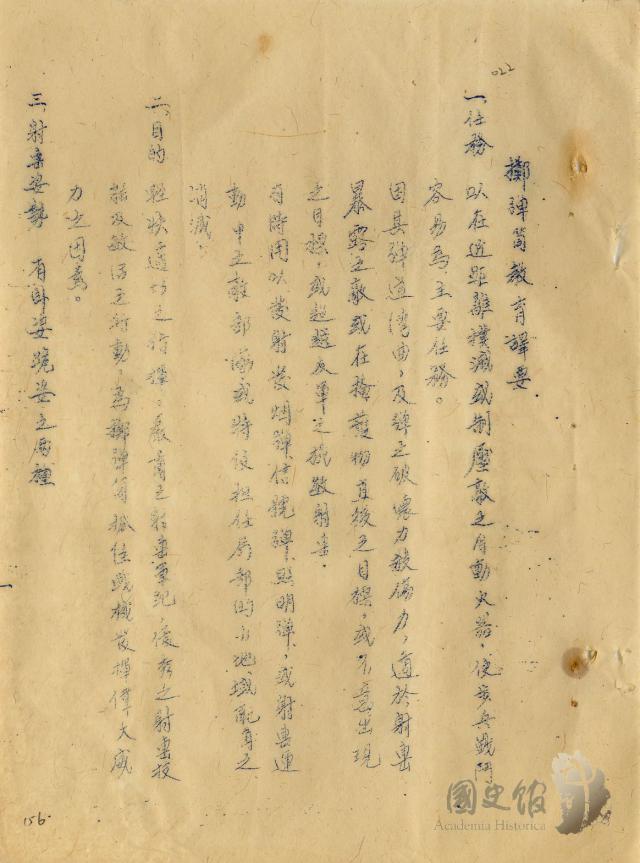 022
擲彈筒教育譯要
一、任務 以在近距離撲滅或制壓敵之自動火器，使步兵戰鬥
容易為主要任務。
因其彈道灣曲，及彈之破壞力殺傷力，適於射擊
暴露之敵或在掩護物直後之目標，或不意出現
之目標，或超越友軍之施敵射擊。
有時用以發射發烟彈信號彈、照明彈，或射擊運
動中之敵部隊或時 擔任局部的小地域配角之
消滅。
二、目的 適切之指揮，嚴肅之射擊軍紀，優秀之射擊技
能及敏活之行動，為擲彈筒 戰機發揮偉大威
力之因素。
三、射擊姿勢 有臥姿跪姿之兩種
156
國史館
Academia Historica